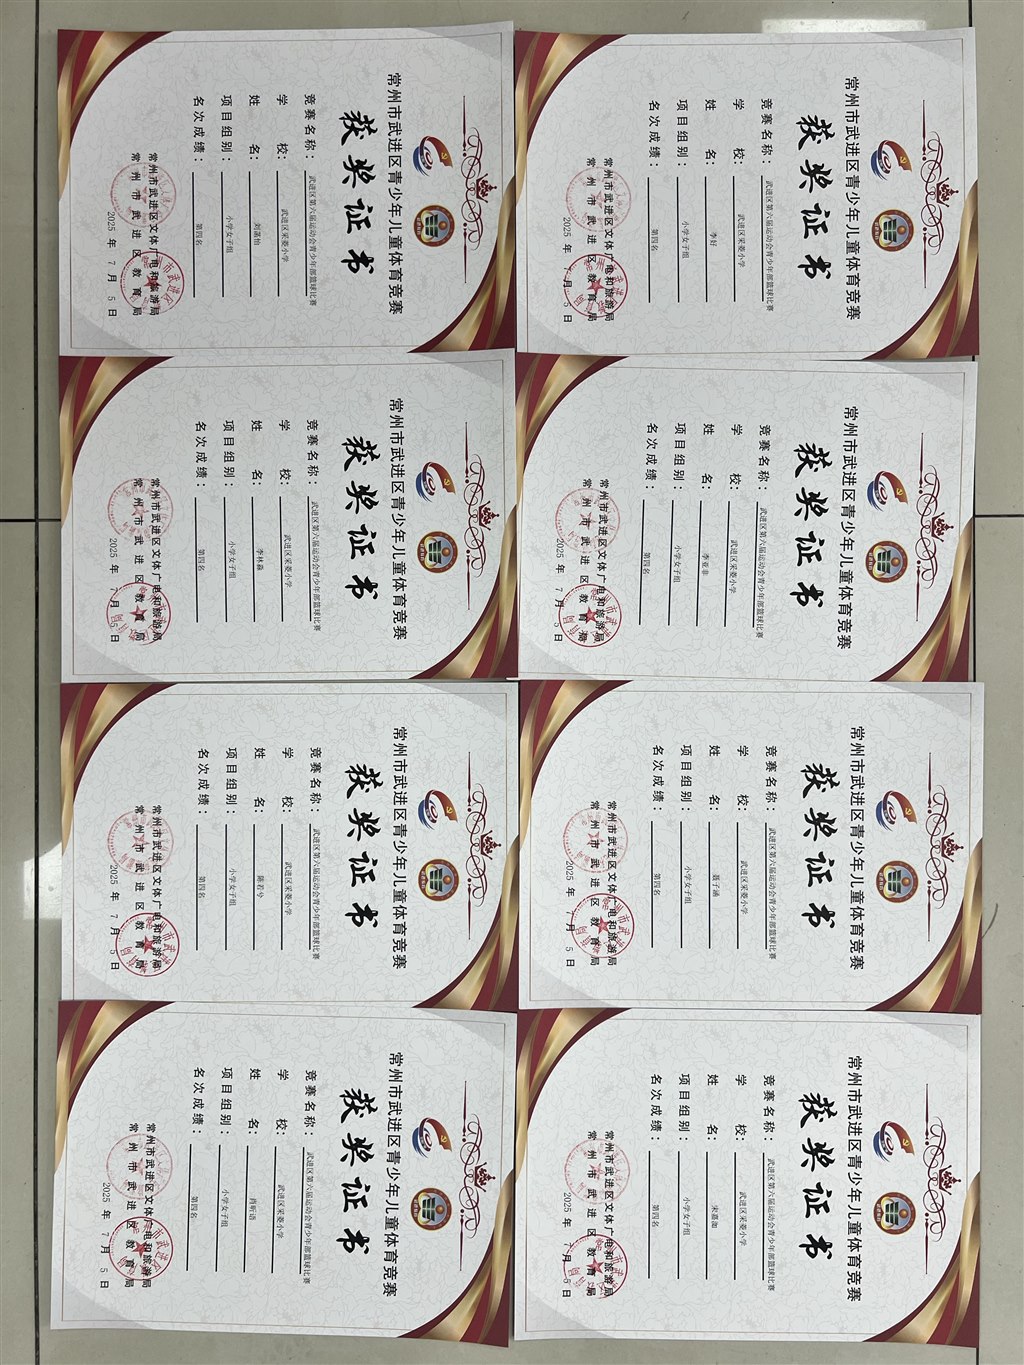 常州市武进区青少年儿童体育竞赛
获奖证书
竞赛名称：武进区第六届运动会青少年部篮球比赛
学校：武进区采菱小学
姓名：李好
项目组别：小学女子组
名次成绩：第四名
常州市武进区文体广电和旅游局
常州市武进区教育局
2025年7月5日
常州市武进区青少年儿童体育竞赛
获奖证书
竞赛名称：武进区第六届运动会青少年部篮球比赛
学校：武进区采菱小学
姓名：李亚非
项目组别：小学女子组
名次成绩：第四名
常州市武进区文体广电和旅游局
常州市武进区教育局
2025年7月5日
常州市武进区青少年儿童体育竞赛
获奖证书
竞赛名称：武进区第六届运动会青少年部篮球比赛
学校：武进区采菱小学
姓名：聂子涵
项目组别：小学女子组
名次成绩：第四名
常州市武进区文体广电和旅游局
常州市武进区教育局
2025年7月5日
常州市武进区青少年儿童体育竞赛
获奖证书
竞赛名称：武进区第六届运动会青少年部篮球比赛
学校：武进区采菱小学
姓名：
项目组别：小学女子组
名次成绩：第四名
常州市武进区文体广电和旅游局
常州市武进区教育局
2025年7月5日
常州市武进区青少年儿童体育竞赛
获奖证书
竞赛名称：武进区第六届运动会青少年部篮球比赛
学校：武进区采菱小学
姓名：刘菡怡
项目组别：小学女子组
名次成绩：第四名
常州市武进区文体广电和旅游局
常州市武进区教育局
2025年7月5日
常州市武进区青少年儿童体育竞赛
获奖证书
竞赛名称：武进区第六届运动会青少年部篮球比赛
学校：武进区采菱小学
姓名：李林淼
项目组别：小学女子组
名次成绩：第四名
常州市武进区文体广电和旅游局
常州市武进区教育局
2025年7月5日
常州市武进区青少年儿童体育竞赛
获奖证书
竞赛名称：武进区第六届运动会青少年部篮球比赛
学校：武进区采菱小学
姓名：陈若兮
项目组别：小学女子组
名次成绩：第四名
常州市武进区文体广电和旅游局
常州市武进区教育局
2025年7月5日
常州市武进区青少年儿童体育竞赛
获奖证书
竞赛名称：武进区第六届运动会青少年部篮球比赛
学校：武进区采菱小学
姓名：肖昕语
项目组别：小学女子组
名次成绩：第四名
常州市武进区文体广电和旅游局
常州市武进区教育局
2025年7月5日